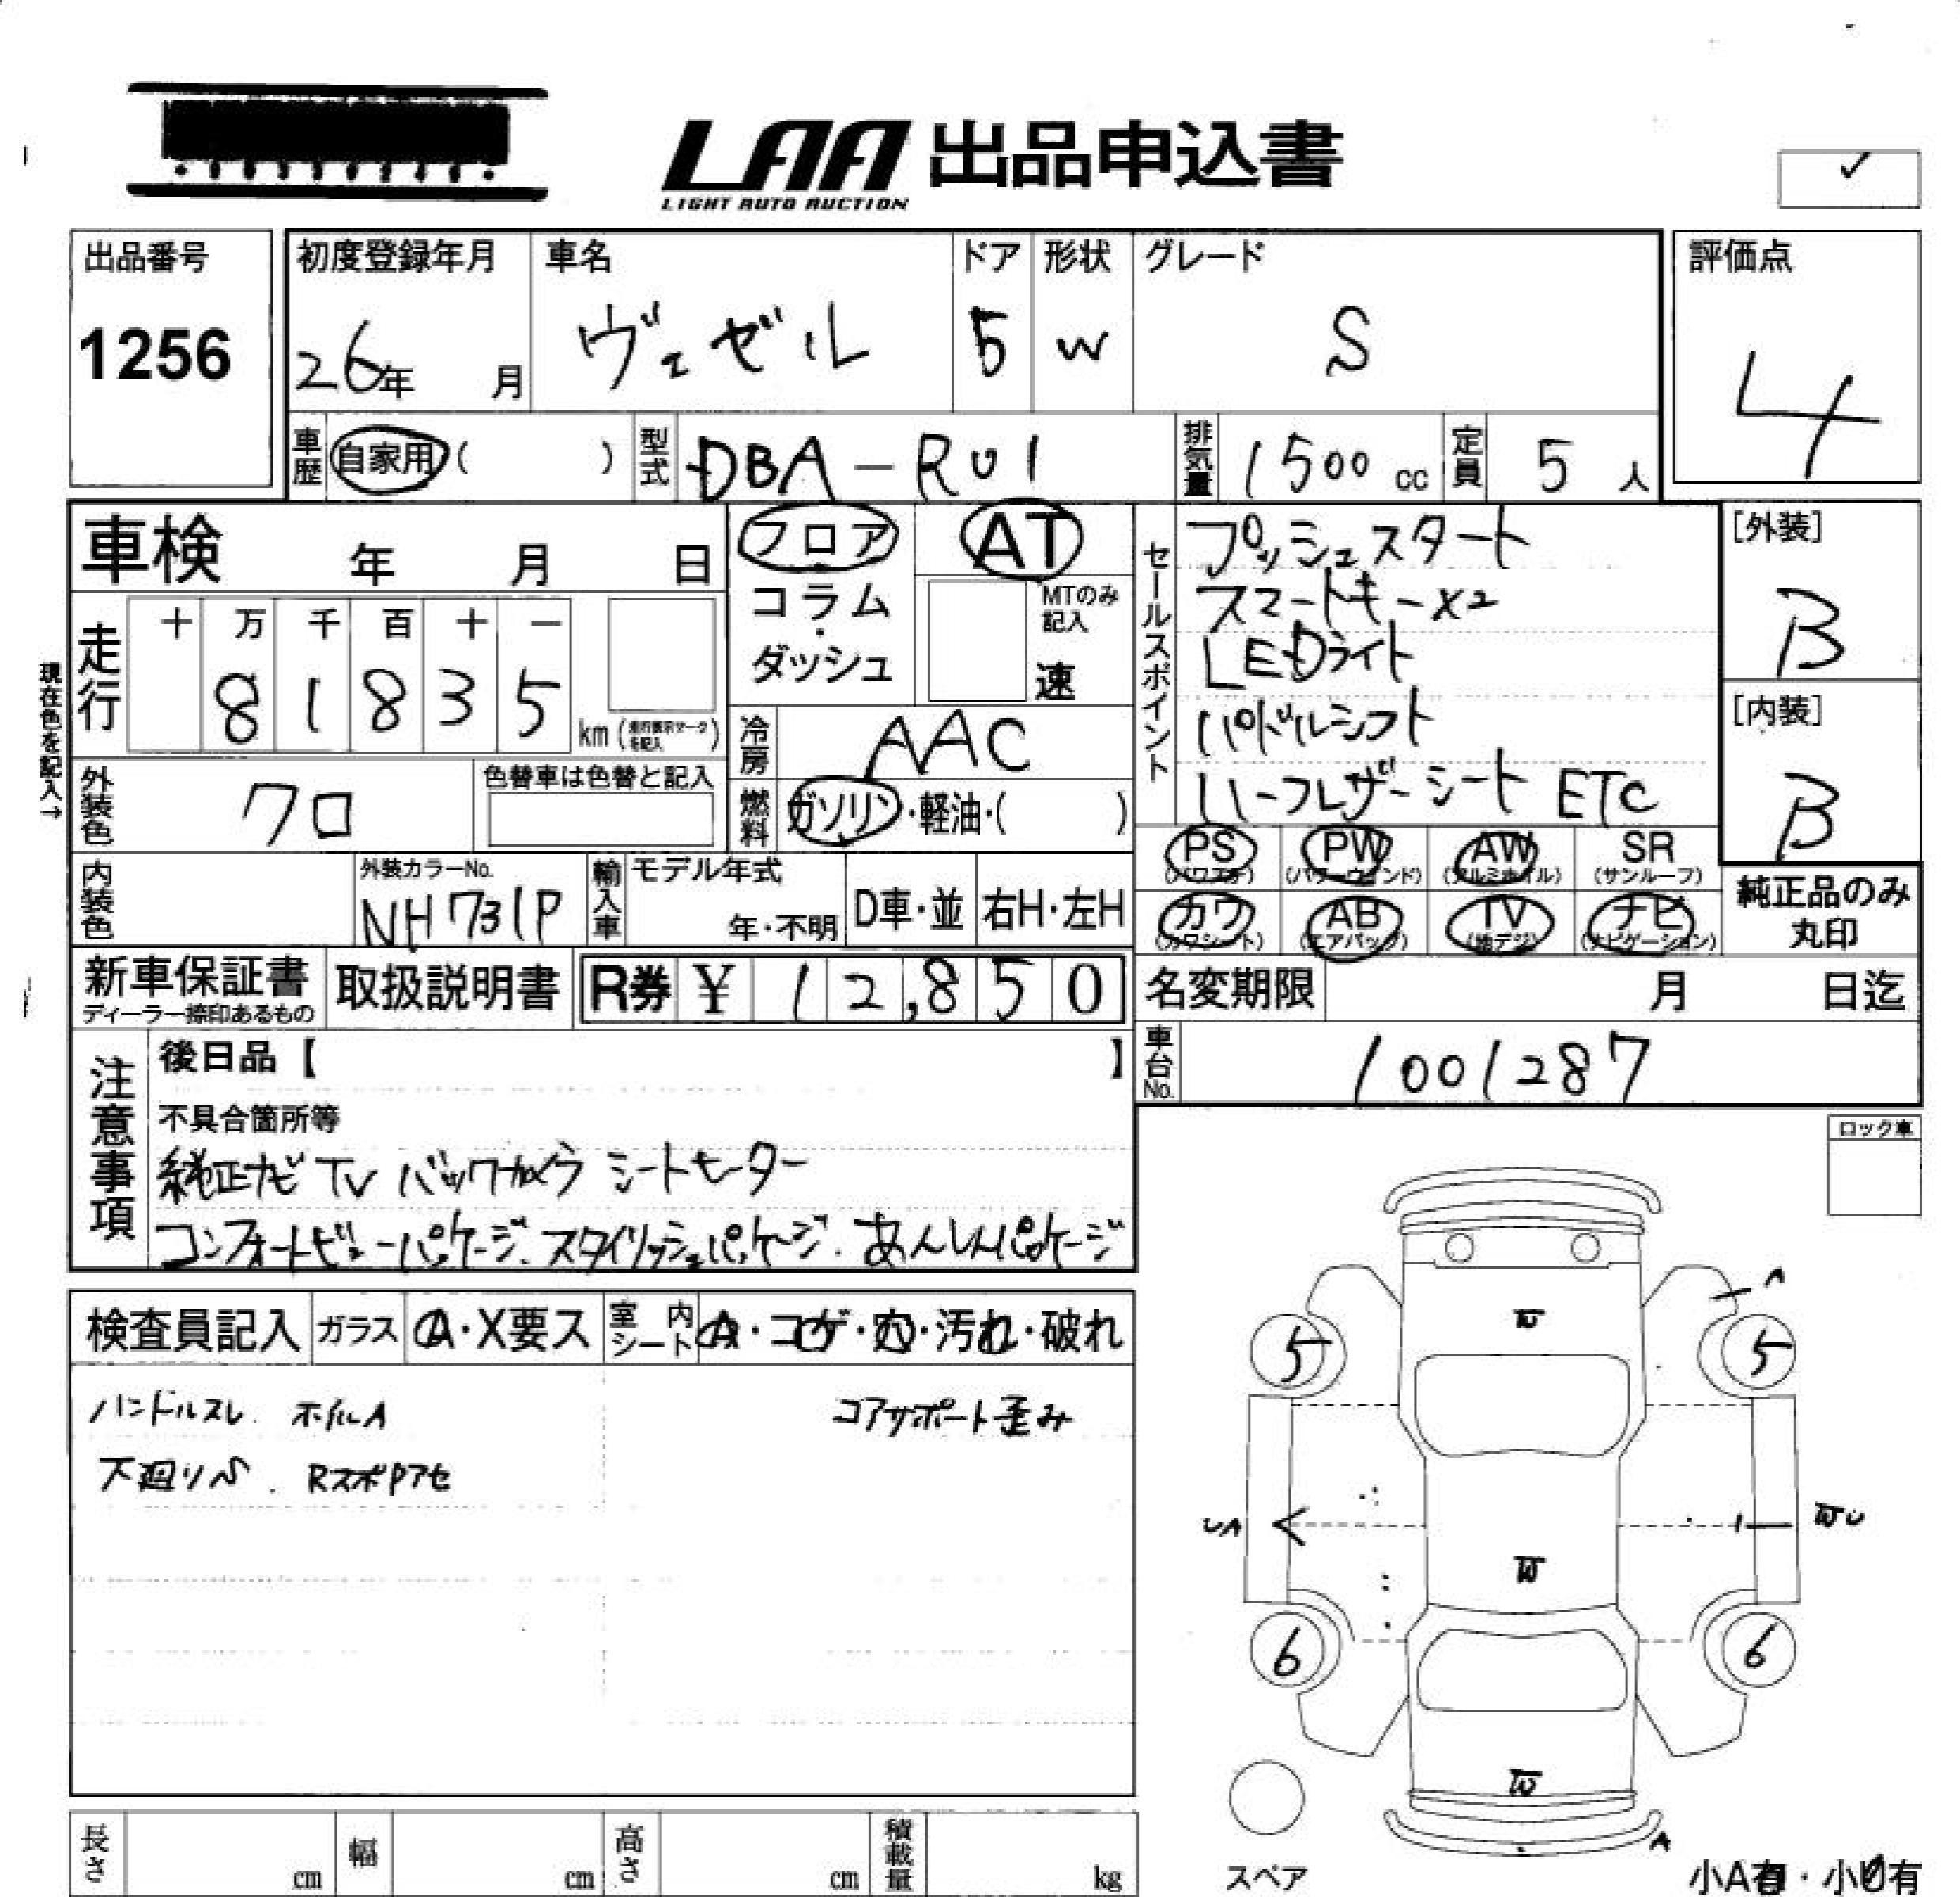 LAA 出品申込書
LIGHT AUTO AUCTION
✓
出品番号
1256
初度登録年月
26年 月
車名
ヴェゼル
ドア
5
形状
W
グレード
S
評価点
4
車歴 自家用 ( )
型式 DBA-RU1
排気量 1500 cc
定員 5 人
車検 年 月 日
フロア・コラム・ダッシュ
AT
MTのみ記入
速
走行
十 万 千 百 十 一
8 1 8 3 5
km
現在色を記入→
冷房 AAC
燃料 ガソリン・軽油・( )
外装色 クロ
色替車は色替と記入
内装色
外装カラーNo.
NH731P
輸入車
モデル年式
年・不明
D車・並
右H・左H
セールスポイント
プッシュスタート
スマートキー×2
LEDライト
パドルシフト
ハーフレザーシート ETC
[外装]
B
[内装]
B
PS PW AW SR
(パワステ) (パワーウインド) (アルミホイル) (サンルーフ)
カワ AB TV ナビ
(カワシート) (エアバック) (地デジ) (ナビゲーション)
純正品のみ
丸印
新車保証書
ディーラー捺印あるもの
取扱説明書
R券 ¥ 12,850
名変期限 月 日迄
車台No. 1001287
注意事項
後日品【 】
不具合箇所等
純正ナビ TV バックカメラ シートヒーター
コンフォートビューパッケージ. スタイリッシュパッケージ. あんしんパッケージ
検査員記入
ガラス A・X要ス
室内シート A・コゲ・穴・汚れ・破れ
ハンドルスレ. ホイルA コアサポート歪み
下廻りS. RスポPアセ
ロック車
A
W
5 5
UA WU
W
6 6
W
A
スペア
小A有・小U有
長さ cm
幅 cm
高さ cm
積載量 kg